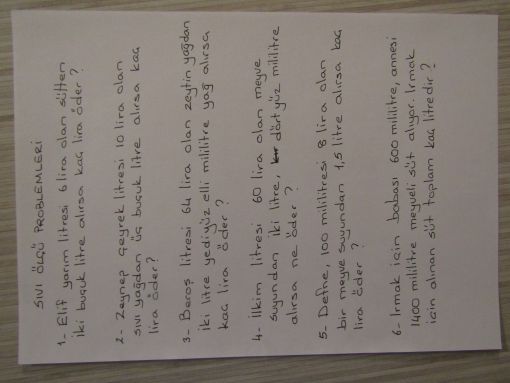 SIVI ÖLÇÜ PROBLEMLERİ
1- Elif yarım litresi 6 lira olan sütten
iki buçuk litre alırsa kaç lira öder?
2- Zeynep çeyrek litresi 10 lira olan
sıvı yağdan üç buçuk litre alırsa kaç
lira öder?
3- Beroş litresi 64 lira olan zeytin yağdan
iki litre yediyüz elli mililitre yağ alırsa
kaç lira öder?
4- Ilkim litresi 60 lira olan meyve
suyundan iki litre, dört yüz mililitre
alırsa ne öder?
5- Defne, 100 mililitresi 8 lira olan
bir meyve suyundan 1,5 litre alırsa kaç
lira öder?
6- Irmak için babası 600 mililitre, annesi
1400 mililitre meyveli süt alıyor. Irmak
için alınan süt toplam kaç litredir?